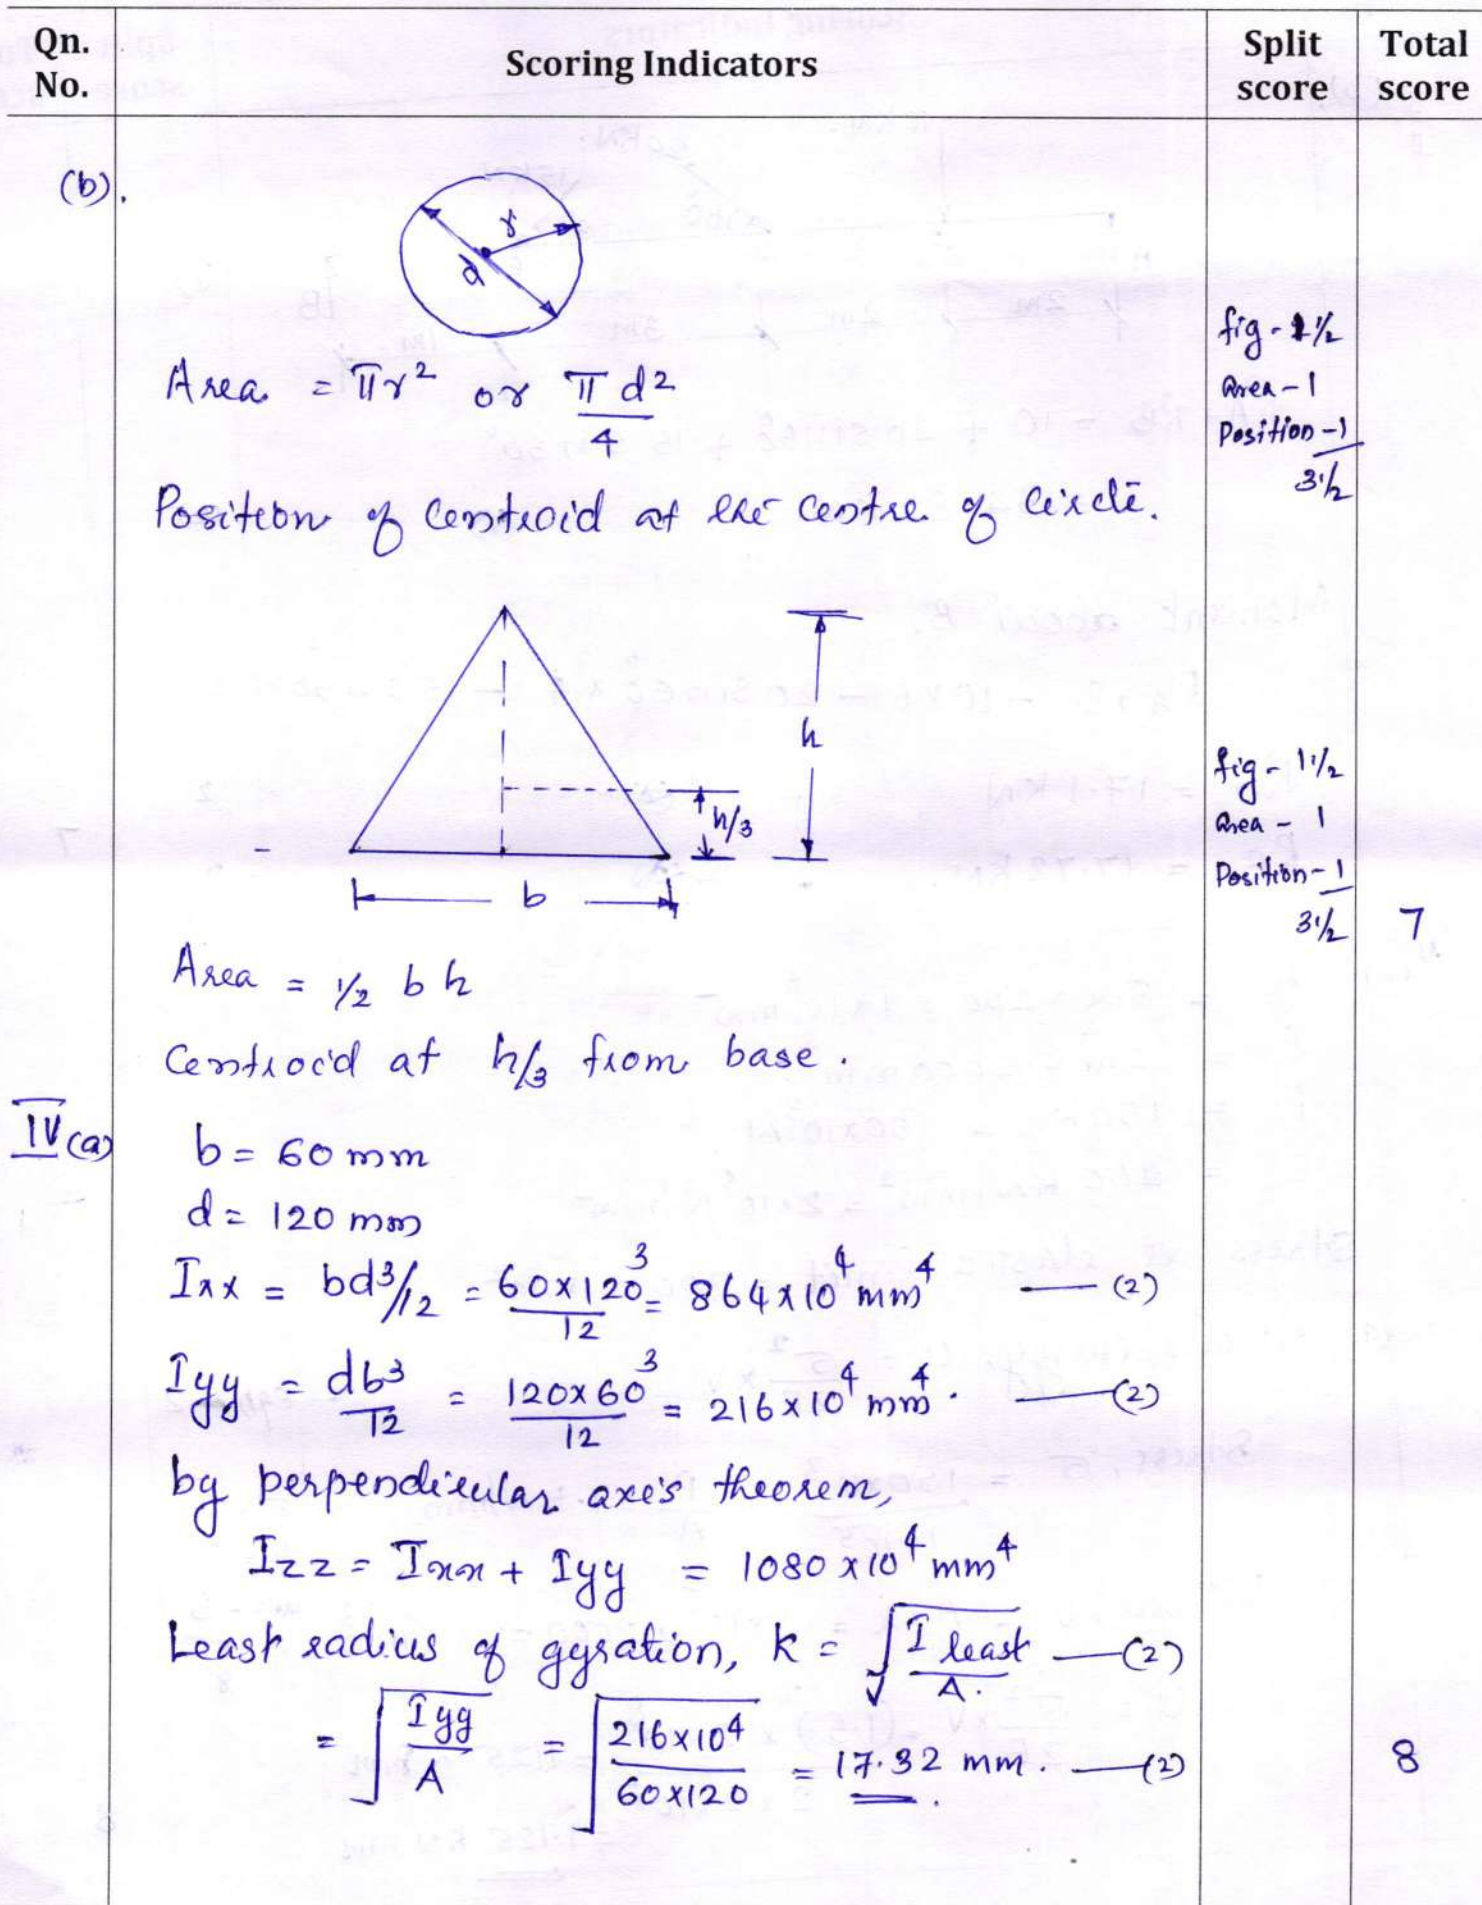 Qn. No.
Scoring Indicators
Split score
Total score
(b).
r
d
Area = πr² or πd²/4
Position of Centroid at the centre of Circle.
fig - 1½
Area - 1
Position - 1
3½
h
h/3
b
fig - 1½
Area - 1
Position - 1
3½
7
Area = 1/2 b h
Centroid at h/3 from base.
IV (a)
b = 60 mm
d = 120 mm
Ixx = bd³/12 = 60×120³/12 = 864×10⁴ mm⁴ — (2)
Iyy = db³/12 = 120×60³/12 = 216×10⁴ mm⁴. — (2)
by perpendicular axis theorem,
Izz = Ixx + Iyy = 1080×10⁴ mm⁴
Least radius of gyration, k = √(I least/A.) — (2)
= √(Iyy/A) = √(216×10⁴/60×120) = 17.32 mm. — (2)
8